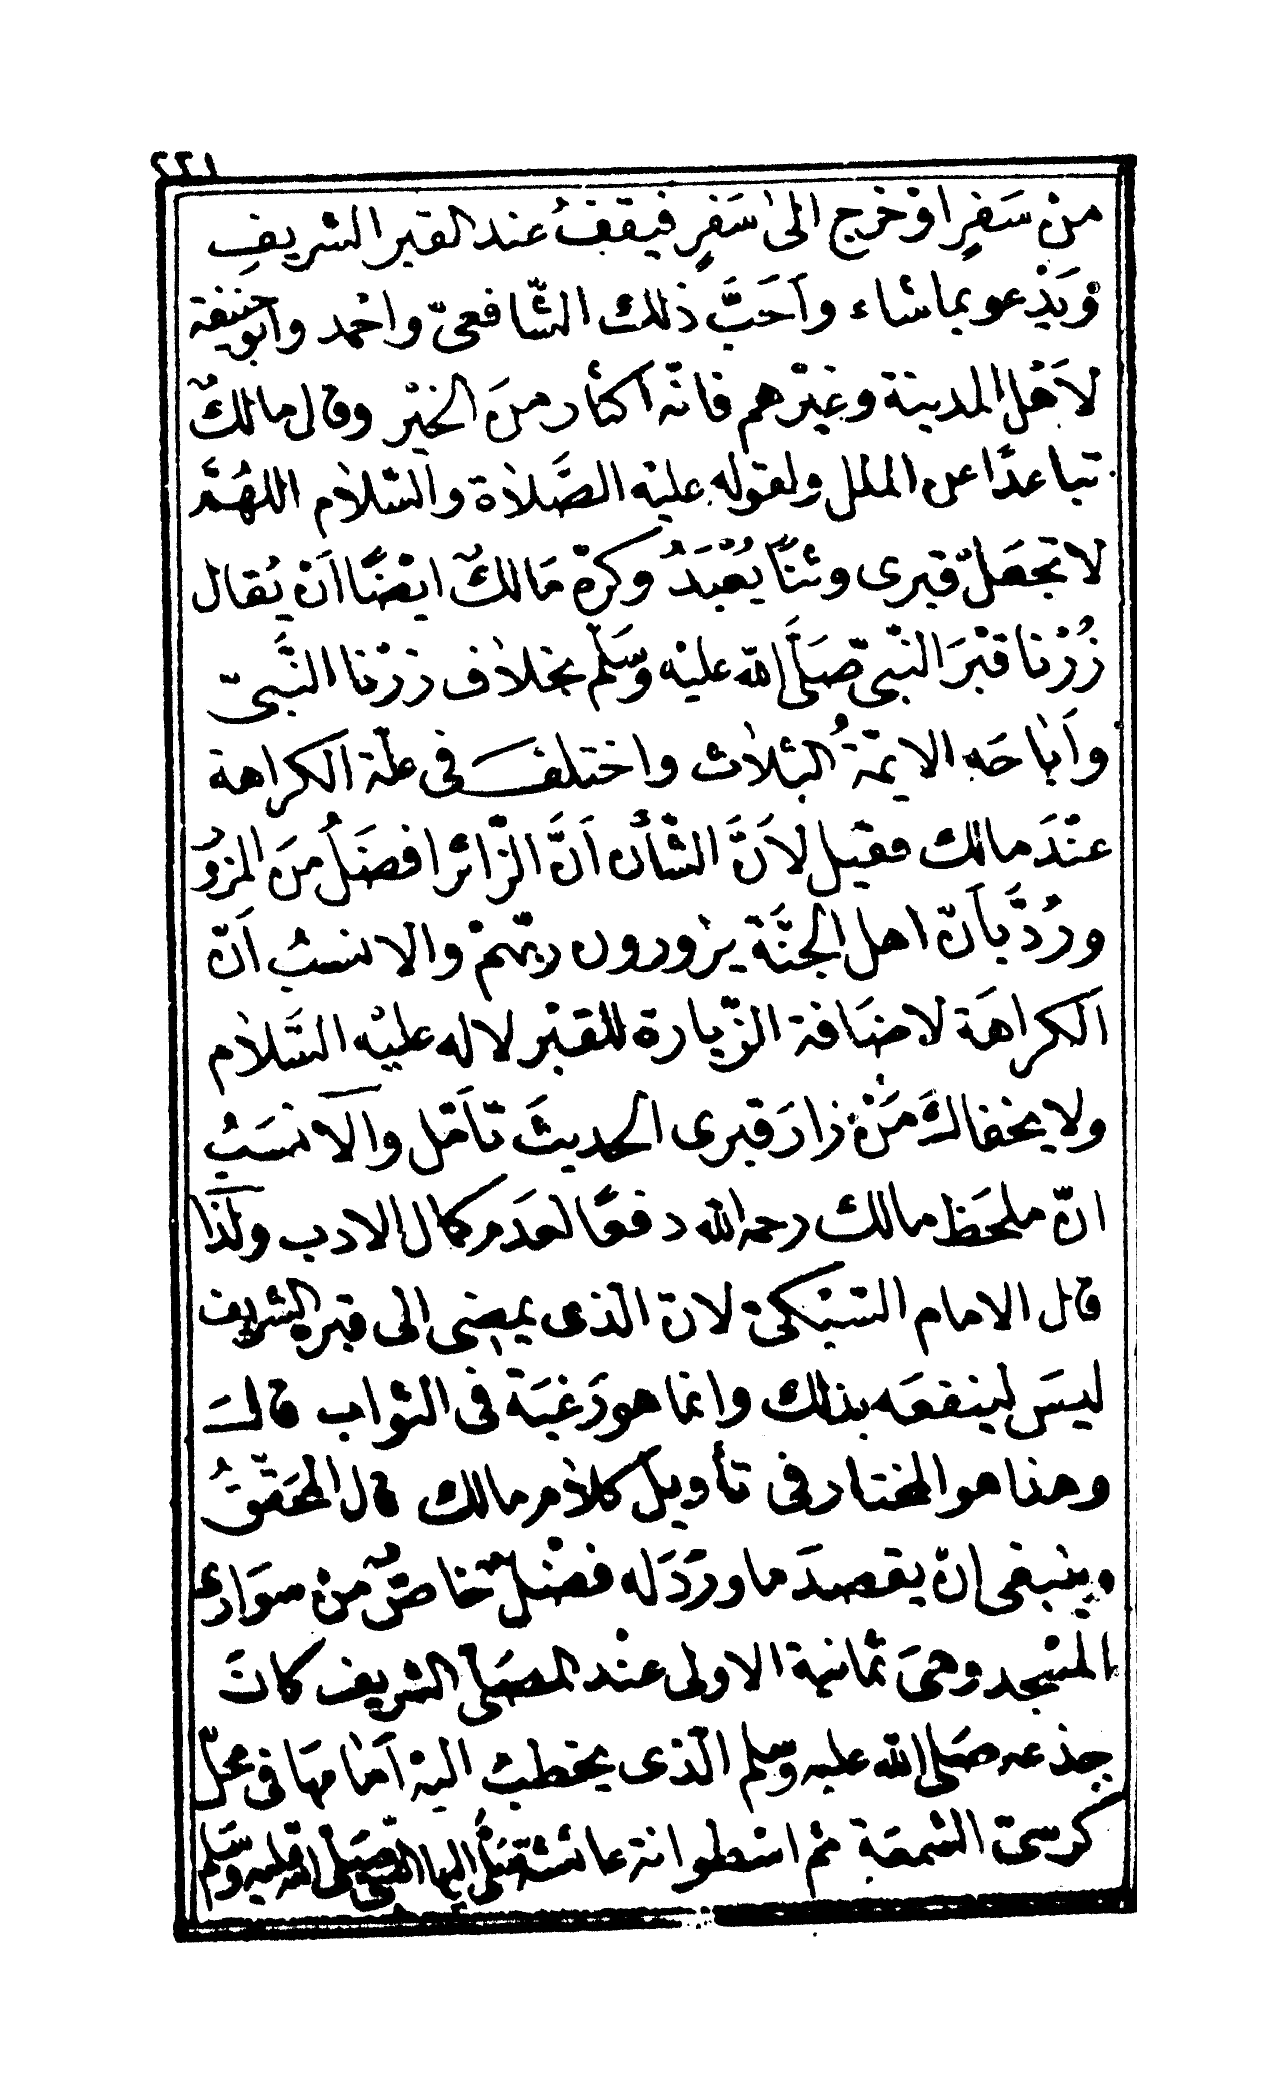 ٢٢١
مِنْ سَفرٍ اوْ خرج الىٰ سَفرٍ فيقفُ عند القبر الشريفِ
وَيَدْعو بما شاء وأحَبَّ ذلك الشّافعيّ واحْمد وابوحنيفة
لاَهْل المدينة وغيْرهم فانّه اكثار منَ الخيْر وقال مالكٌ
تباعدًا عن الملل ولقوله عليْه الصَّلاة والسّلام اللهُمَّ
لا تجعَلْ قبرى وثنًا يُعْبَدُ وكرهَ مَالكٌ ايْضًا اَنْ يُقال
زُرْنا قبْرَ النّبيّ صَلَّى الله عليْه وَسَلّم بخلاف زرْنا النَّبيّ
وأباحَه الايمّةُ الثلاث واختلف فى علّة الكراهة
عنْدَ مالك فقيل لاَنَّ الشأن اَنَّ الزّائر افضَلُ منَ المزوُ
ورُدَّ بأنّ اهل الجنَّة يزورون ربّهمْ والانسبُ اَنّ
الكراهَة لاضَافة الزّيارة للقبْر لا له عليْه السَّلام
ولا يخفاكَ مَنْ زارَ قبرى الحديثَ تأمّل والانسَبُ
انّ ملحَظ مالك رحمه الله دفعًا لعدَم كمال الادب ولذا
قال الامام السّبْكى لانّ الذى يمضى الى قبره الشريف
ليسَ لينفعَه بذلك وانما هو رَغبَة فى الثواب قالَ
وهذا هو المختار فى تأويل كلام مالك قال المحَقّقُ
وينْبغى انْ يقصدَ ما ورَدَ له فضْلٌ خاصٌّ منْ سوَارى
المسْجد وهىَ ثمانية الاولى عنْد المصَلّى الشريف كانَ
جذعه صَلى الله عليه وسلم الّذى يخطبُ اليْه اَمَامهَا فى محلّ
كرسىّ الشمعَة ثم اسْطوانة عائشة صَلَّى اليها النبي صَلى الله عليه وَسَلم